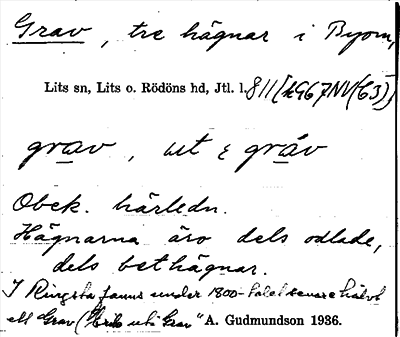 Grav, tre hägnar i Byom,
Lits sn, Lits o. Rödöns hd, Jtl. l. 811[19G7NV(63)]
grav, ut i gráv
Obek. härledn.
Hägnarna äro dels odlade,
dels bethägnar.
I Ringsta fanns under 1800-talets senare hälvt
ett Grav ("Erik uti Grav" A. Gudmundson 1936.